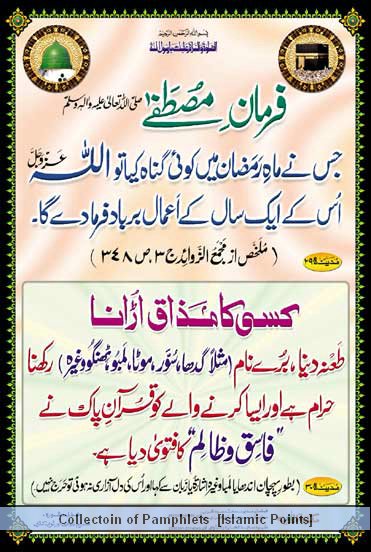 بسم الله الرحمن الرحيم
الصلوة والسلام عليك يارسول الله
فرمانِ مصطفےٰ صلی اللہ تعالیٰ علیہ والہ وسلم
جس نے ماہِ رمضان میں کوئی گناہ کیا تو اللہ عزوجل
اُس کے ایک سال کے اعمال برباد فرما دے گا۔
(ملخص از مجمع الزوائد ج ۳، ص ۳۴۸)
مدینہ ۲۹
کسی کا مذاق اڑانا
طعنہ دینا، بُرے نام (مثلاً گدھا، سُور، موٹا، لمبو، ٹھنگو وغیرہ) رکھنا
حرام ہے اور ایسا کرنے والے کو قرآنِ پاک نے
"فاسق و ظالم" کا فتویٰ دیا ہے۔
(بطورِ پہچان اندھا یا لمبا وغیرہ اشارۃً یا زبان سے کہا اور اُس کی دل آزاری نہ ہوتی ہو تو حرج نہیں)
مدینہ ۳۰
Collectoin of Pamphlets [Islamic Points]